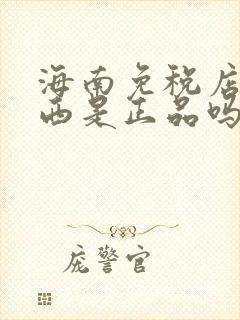 海南免税店
西是正品吗
庞警官